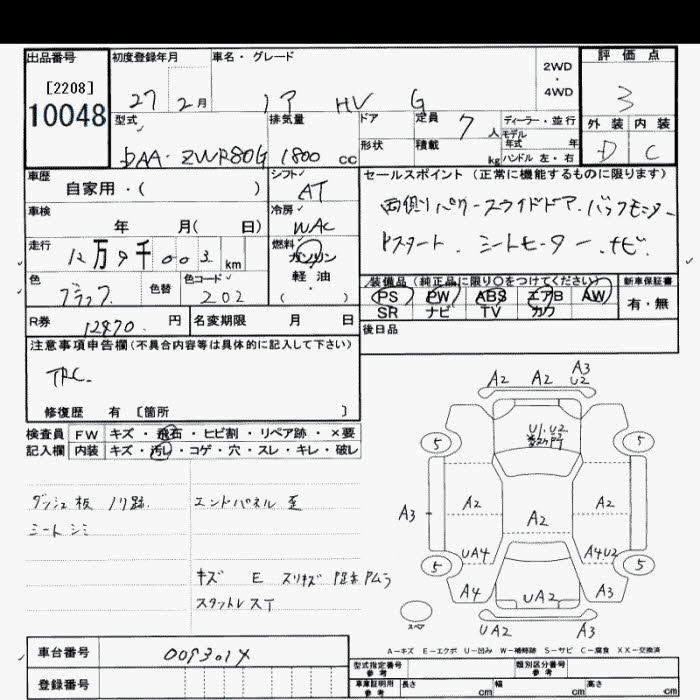 出品番号
[2208]
10048
初度登録年月
27 2月
車名・グレード
ノア HV G
2WD
・
4WD
評価点
3
外装 内装
D C
型式
DAA・ZWR80G
排気量
1800 cc
ドア
形状
定員 7 人
積載 kg
ディーラー・並行
モデル
年式 年
ハンドル 左・右
車歴
自家用・( )
シフト
AT
車検
年 月( 日)
冷房
WAC
走行
12万9千003 km
燃料
ガソリン
軽油
( )
色
ブラック
色替
色コード
202
R券
12870. 円
名変期限 月 日
セールスポイント (正常に機能するものに限ります)
両側パワースライドドア、バックモニター
Pスタート、シートヒーター、ナビ
装備品 (純正品に限り○をつけてください)
PS PW ABS エアB AW
SR ナビ TV カワ
新車保証書
有・無
後日品
注意事項申告欄(不具合内容等は具体的に記入して下さい)
TRC
修復歴 有 [箇所 ]
検査員 FW キズ・飛石・ヒビ割・リペア跡・×要
記入欄 内装 キズ・汚レ・コゲ・穴・スレ・キレ・破レ
ダッシュ板 ノリ跡
シートシミ
エンドパネル 歪
キズ E スリキズ
スタットレスT
A2 A2 A3
U2
U1.U2
5 5
A3 A2 A2 A3
A2
UA4 A4U2
5 5
A4 UA2 A3
スペア
UA2 A3
A－キズ E－エクボ U－凹み W－補修跡 S－サビ C－腐食 XX－交換済
車台番号
登録番号
型式指定番号
参考
類別区分番号
参考
車庫証明用
参考
長さ cm 幅 cm 高さ cm